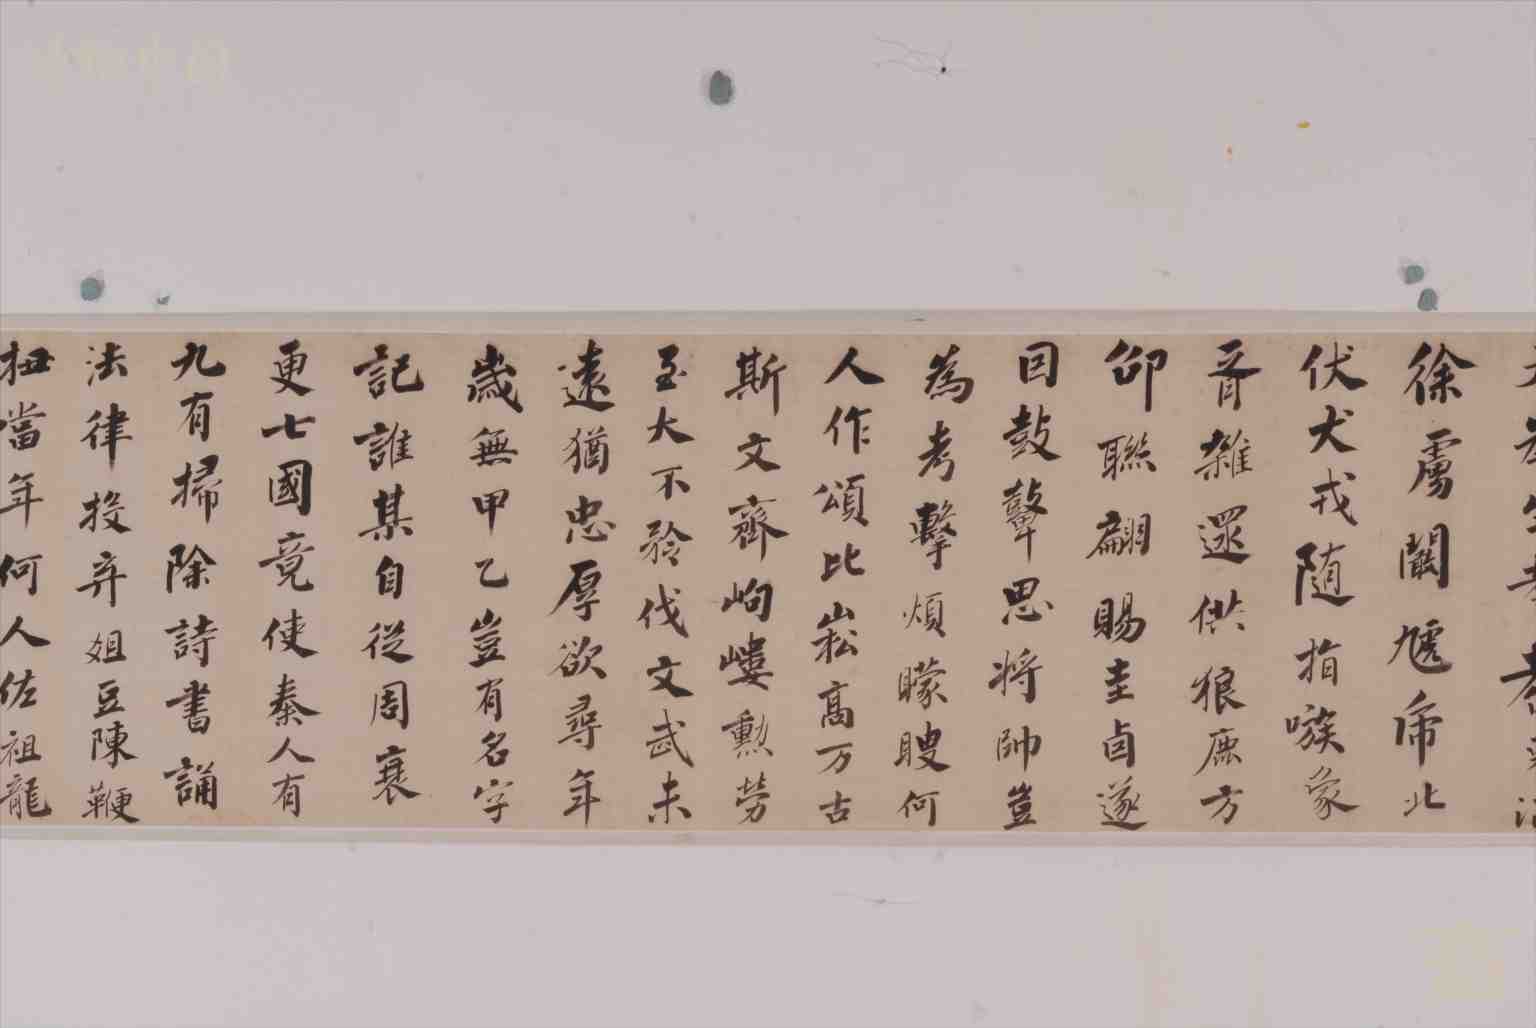 徐虜闞虓帝北
伏犬戎随指嗾象
胥雜遝供狼鹿方
卲聯翩賜圭卣遂
因鼓鼙思将帥豈
為考擊煩矇瞍何
人作頌比崧高万古
斯文齊岣嶁勲勞
至大不矜伐文武未
遠猶忠厚欲尋年
歲無甲乙豈有名字
記誰某自從周衰
更七國竟使秦人有
九有掃除詩書誦
法律投弃俎豆陳鞭
杻當年何人佐祖龍